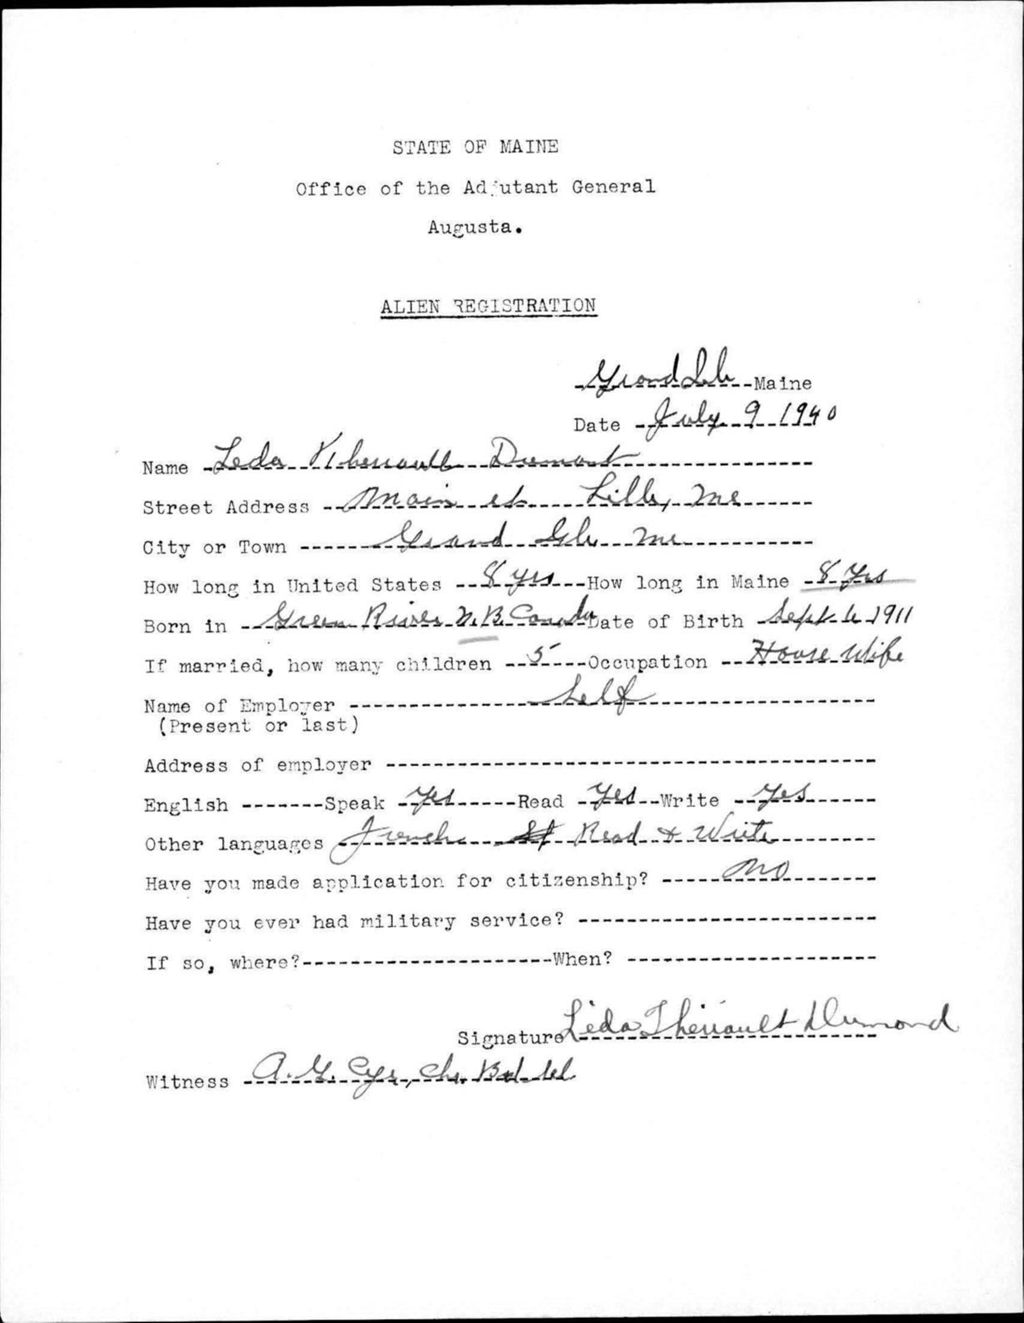 STATE OF MAINE
Office of the Adjutant General
Augusta.
ALIEN REGISTRATION
Grand Isle Maine
Date July 9 1940
Name Leda Therriault Dumont
Street Address Main st Lille, Me
City or Town Grand Isle Me
How long in United States 8 yrs How long in Maine 8 Yrs
Born in Green River N.B. Canada Date of Birth Sept. 6 1911
If married, how many children 5 Occupation House Wife
Name of Employer Self
(Present or last)
Address of employer
English Speak Yes Read Yes Write Yes
Other languages French Read & Write
Have you made application for citizenship? No
Have you ever had military service?
If so, where? When?
Signature Léda Therriault Dumond
Witness A. G. Cyr, Ch. Bd.